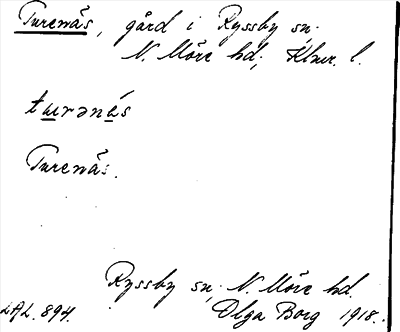 Turenäs, gård i Ryssby sn;
N. Möre hd; Klmr. l.
turənä́s
Turenäs.
Ryssby sn; N. Möre hd.
LAL. 894. Olga Borg 1918.